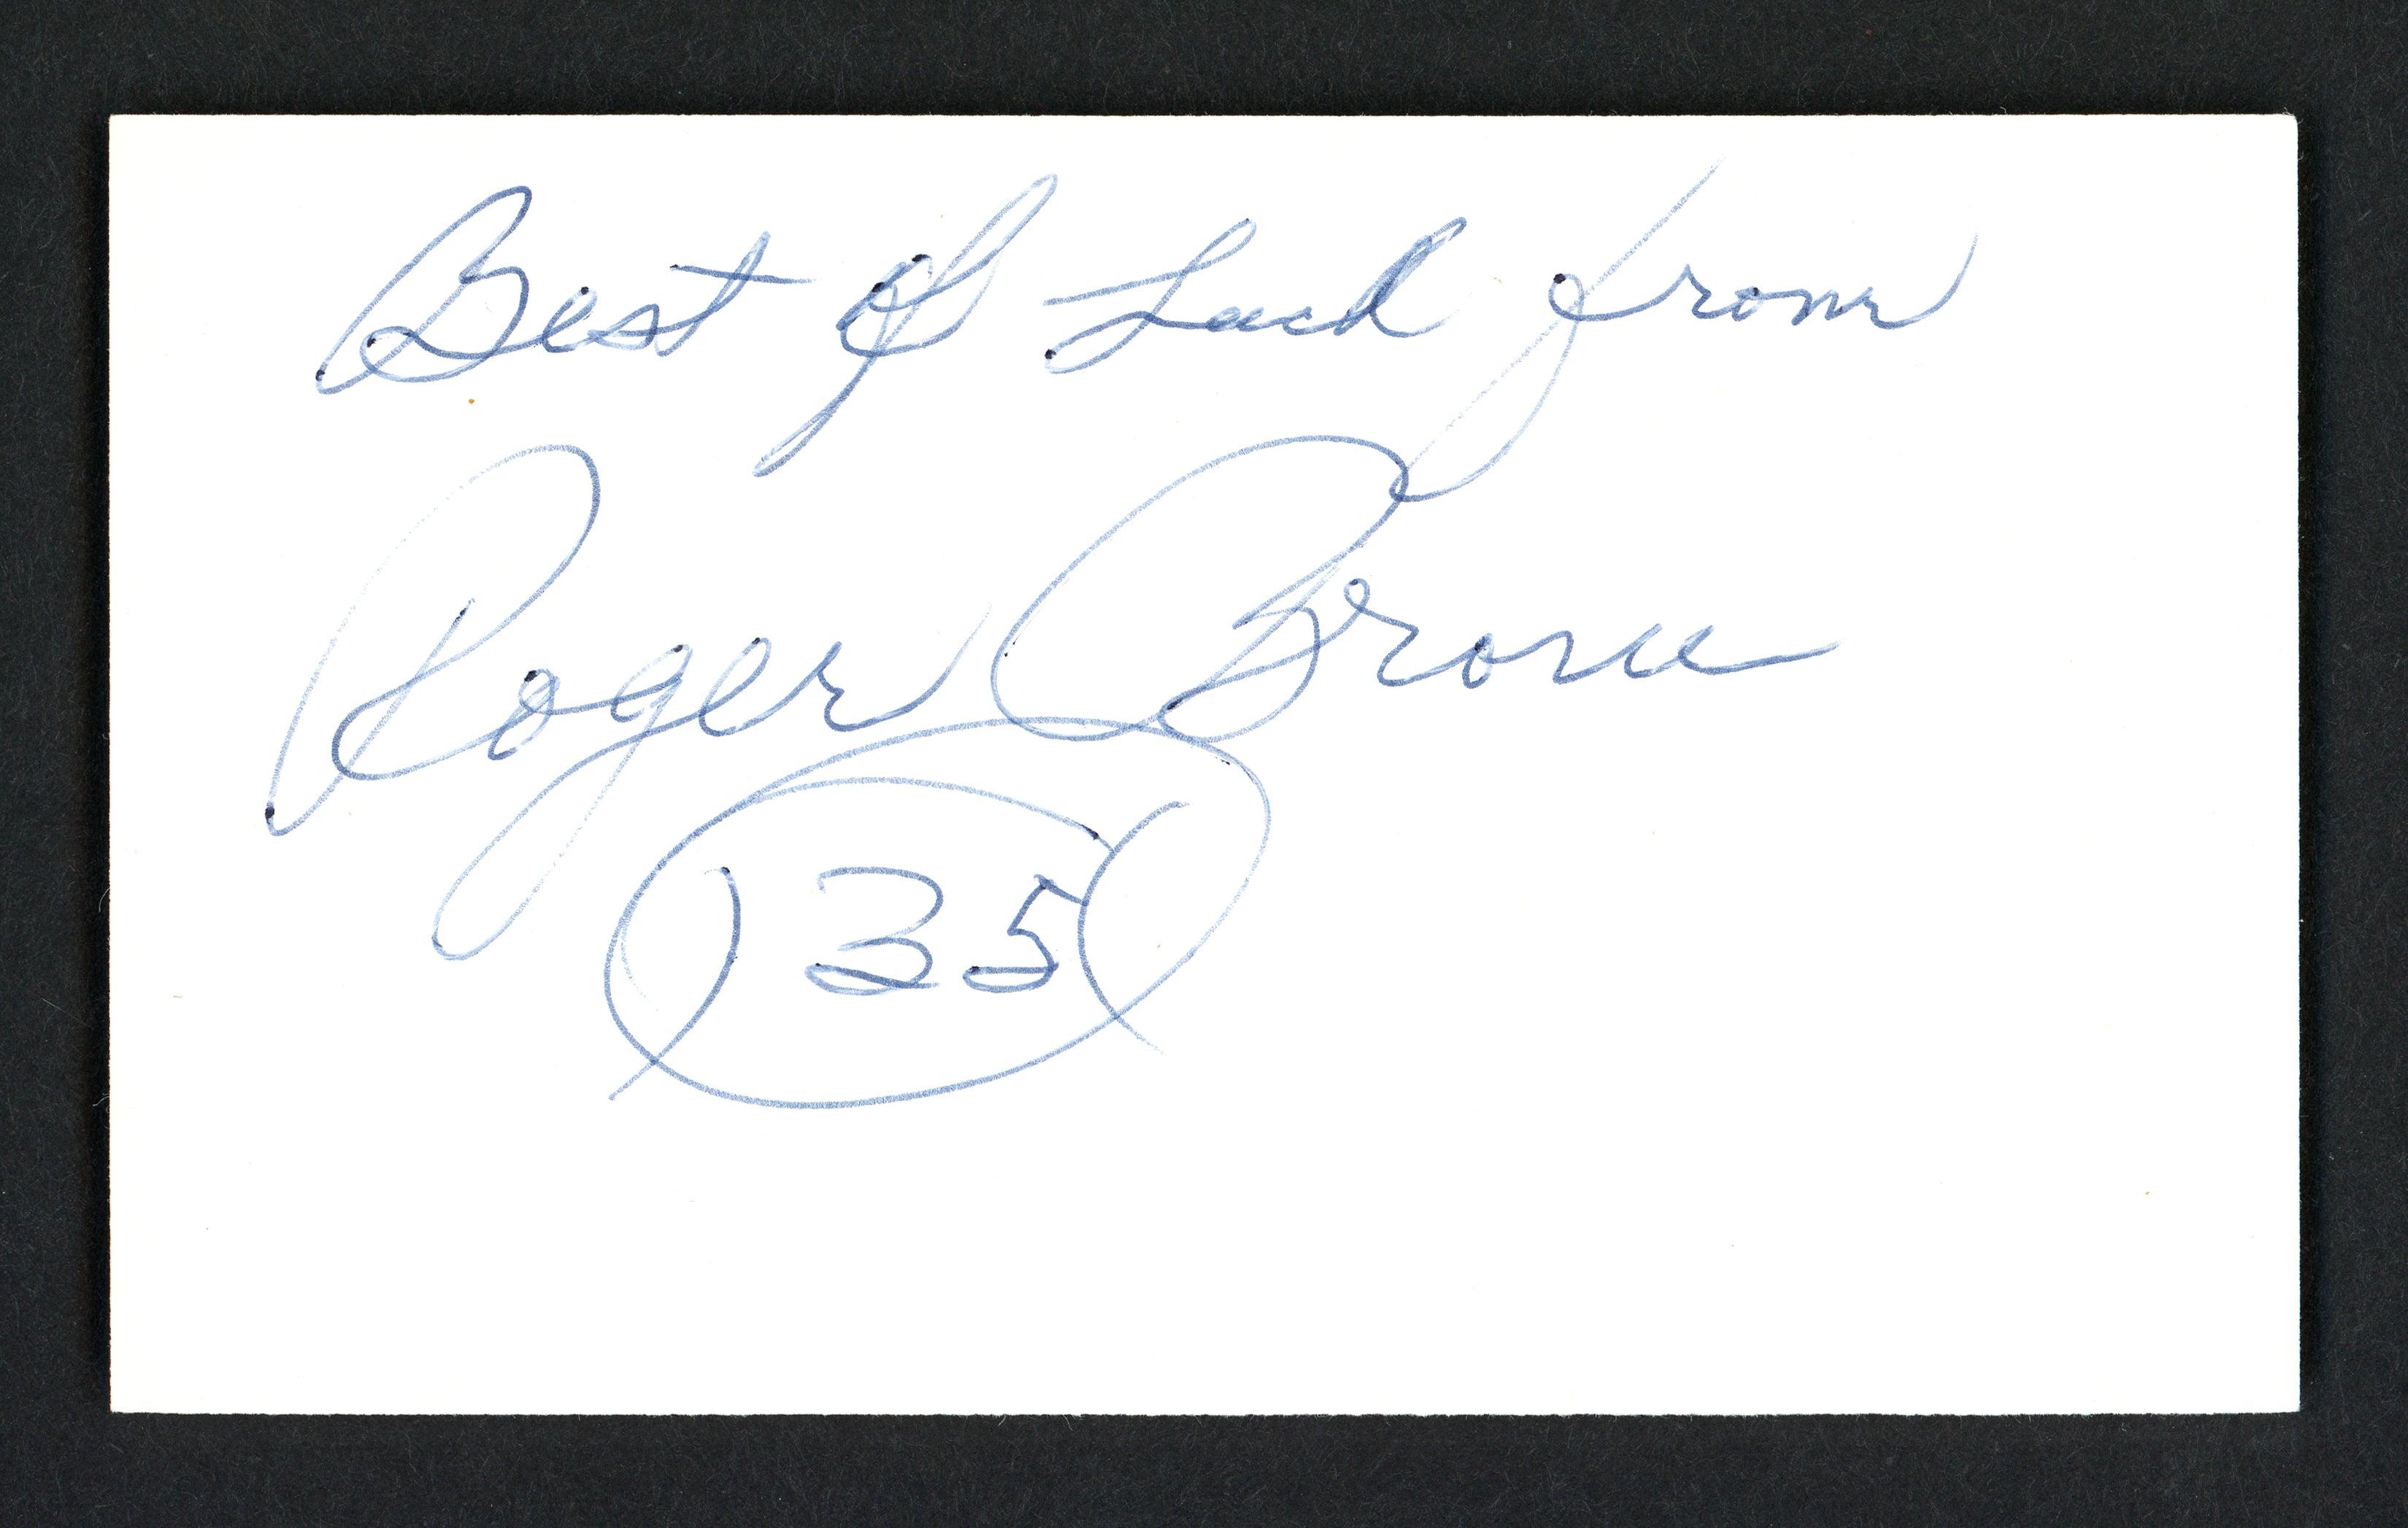 Best of Luck from
Roger Brown
35